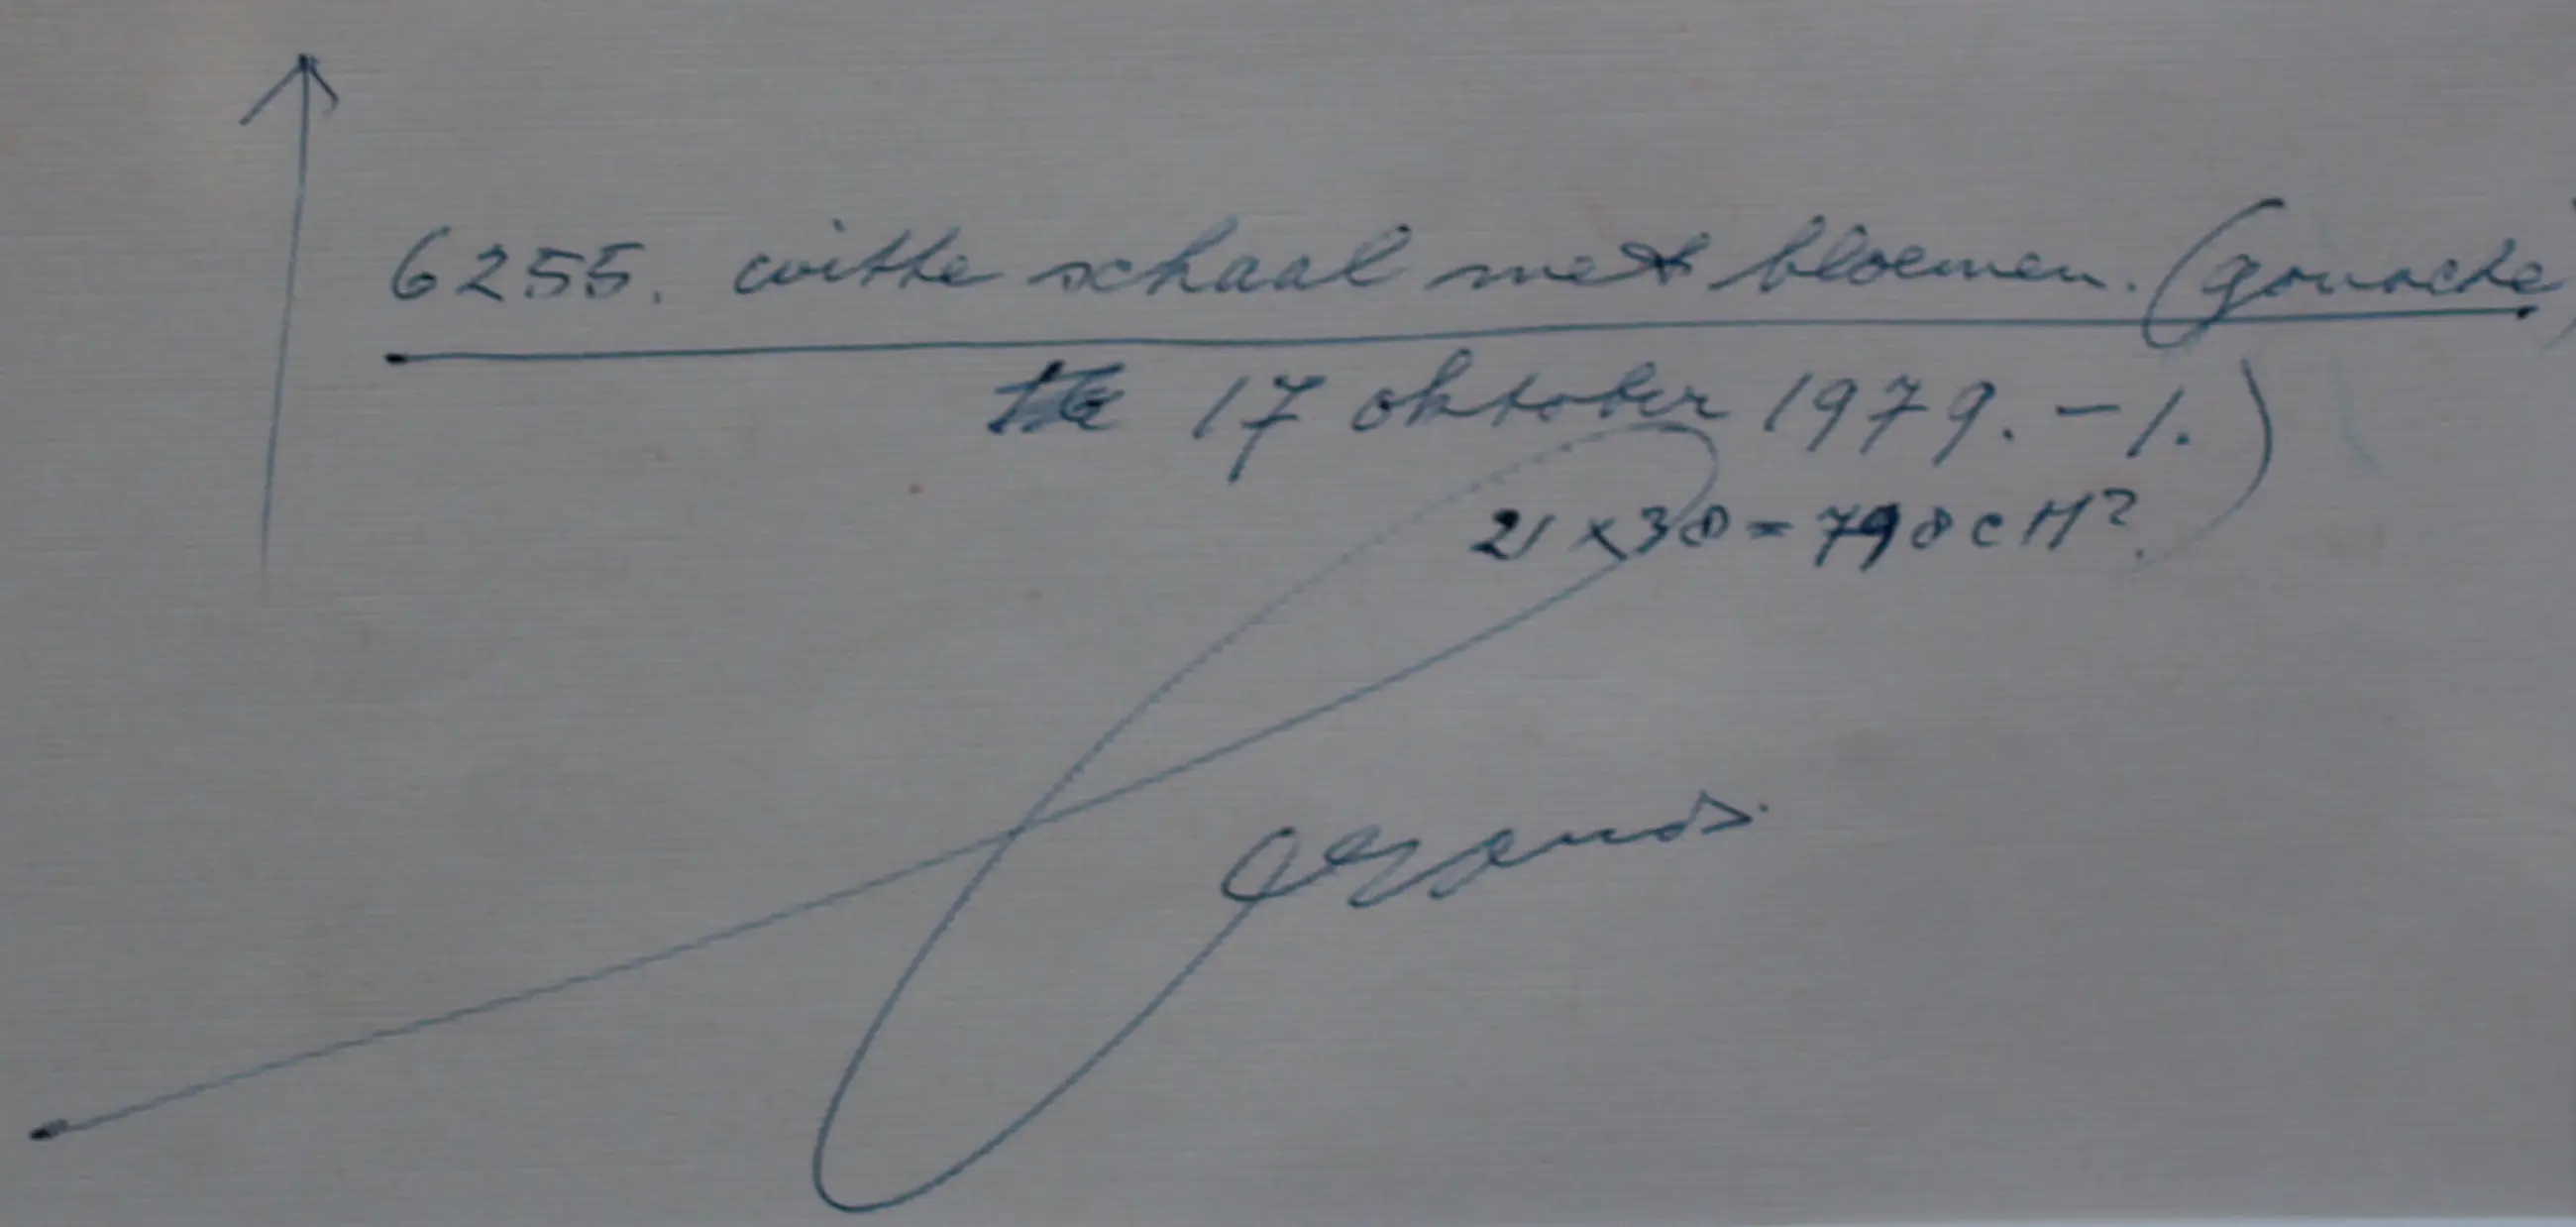 6255. witte schaal met bloemen. (gouache)
17 oktober 1979. - 1.)
21 x 38 = 798 cM²